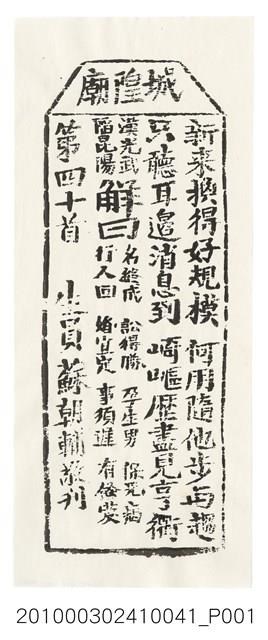 城隍廟
新來換得好規模 何用隨他步與趨
只聽耳邊消息到 崎嶇歷盡見亨衢
漢光武陷昆陽
解曰
名終成 訟得勝 孕生男 保免病
行人回 婚宜定 事須進 有餘慶
第四十首 生員蘇朝輔敬刊
201000302410041_P001